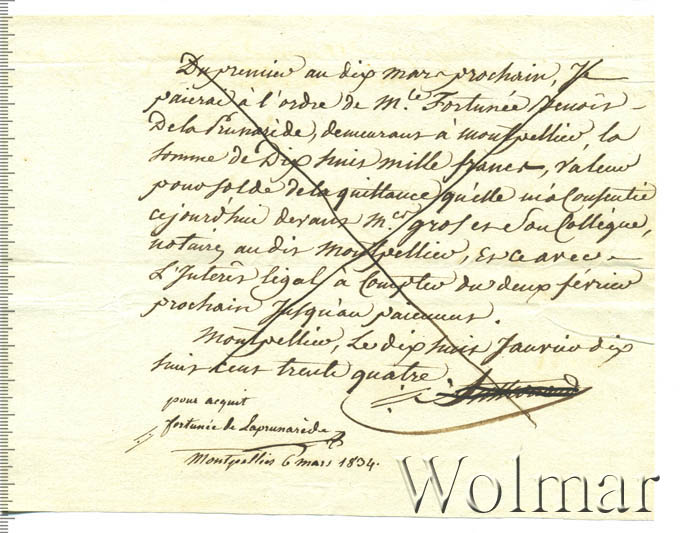 Du premier au dix mars prochain, Je
paierai à l'ordre de M.lle Fortunée Benoît
De la Prunarède, demeurant à montpellier la
Somme de Dix huit mille francs, Valeur
pour solde de la quittance qu'elle m'a Consentie
cejourd'hui devant M.es gros et Son Collègue,
notaires au dit Montpellier, Et ce avec
L'Interêt légal à Compter du deux février
prochain Jusqu'au paiement.
Montpellier, Le dix huit Janvier dix
huit cent trente quatre
pour acquit
fortunée de Laprunarède
Montpellier 6 mars 1834.
Wolmar